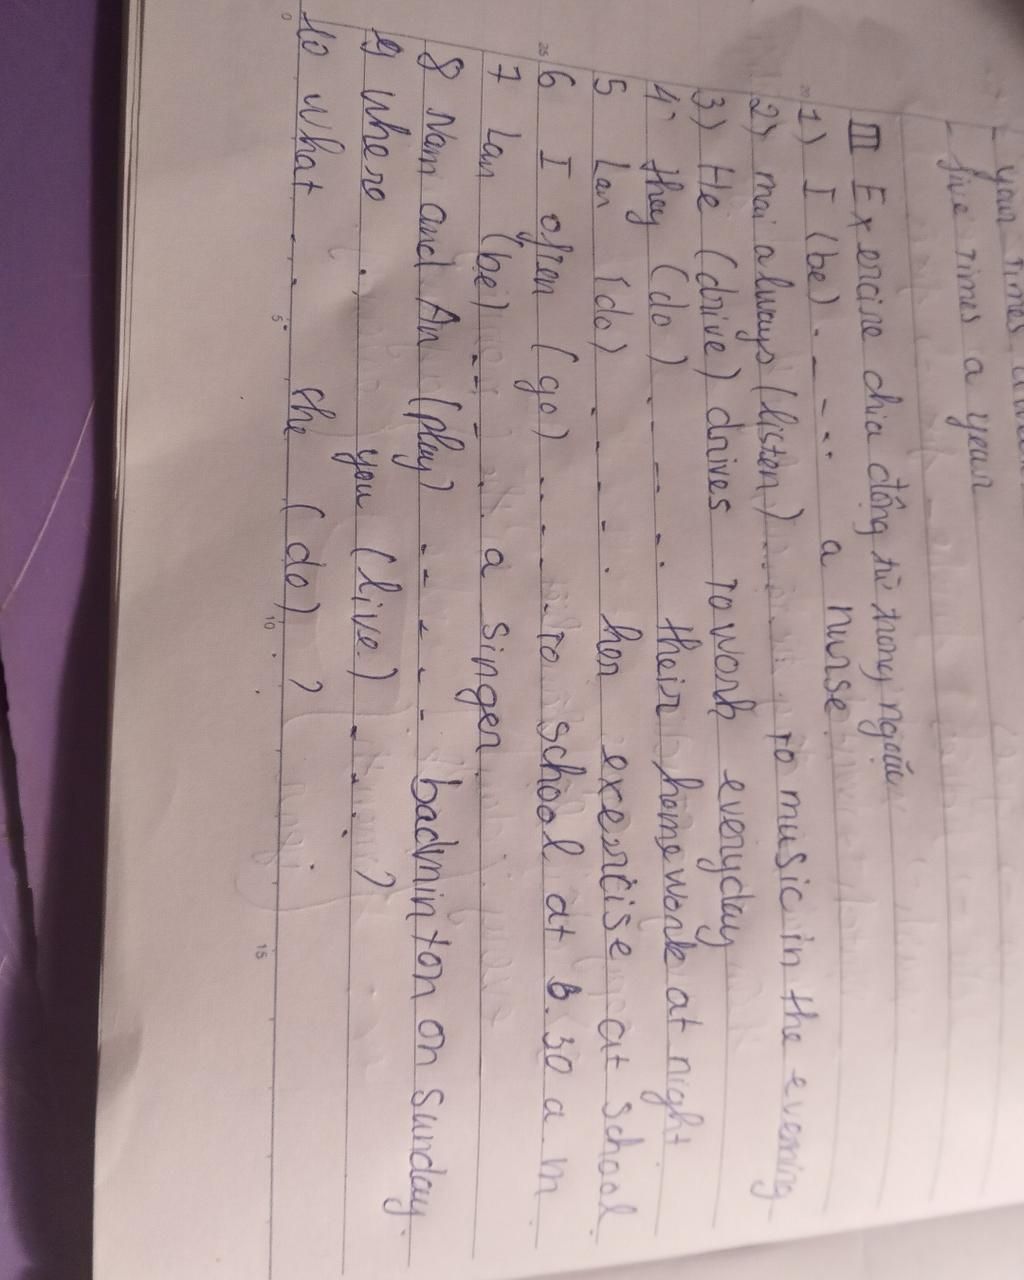 - your times a
- five times a year
III Exercise chia động từ trong ngoặc
1) I (be) . - - . . a nurse
2) mai always (listen) ..... to music in the evening
3) He (drive) drives to work everyday
4) they (do) . - -- - . their homework at night.
5 Lan (do) . - - - . her exercise at school.
6 I often (go) .. - - . .. to school at 6.30 a.m
7 Lan (be) - - - . . a singer
8 Nam and An (play) - - - - - badminton on sunday.
9 where . . you (live) - - . . ?
10 what . - . she (do) ?
0
5
10
15
20
25